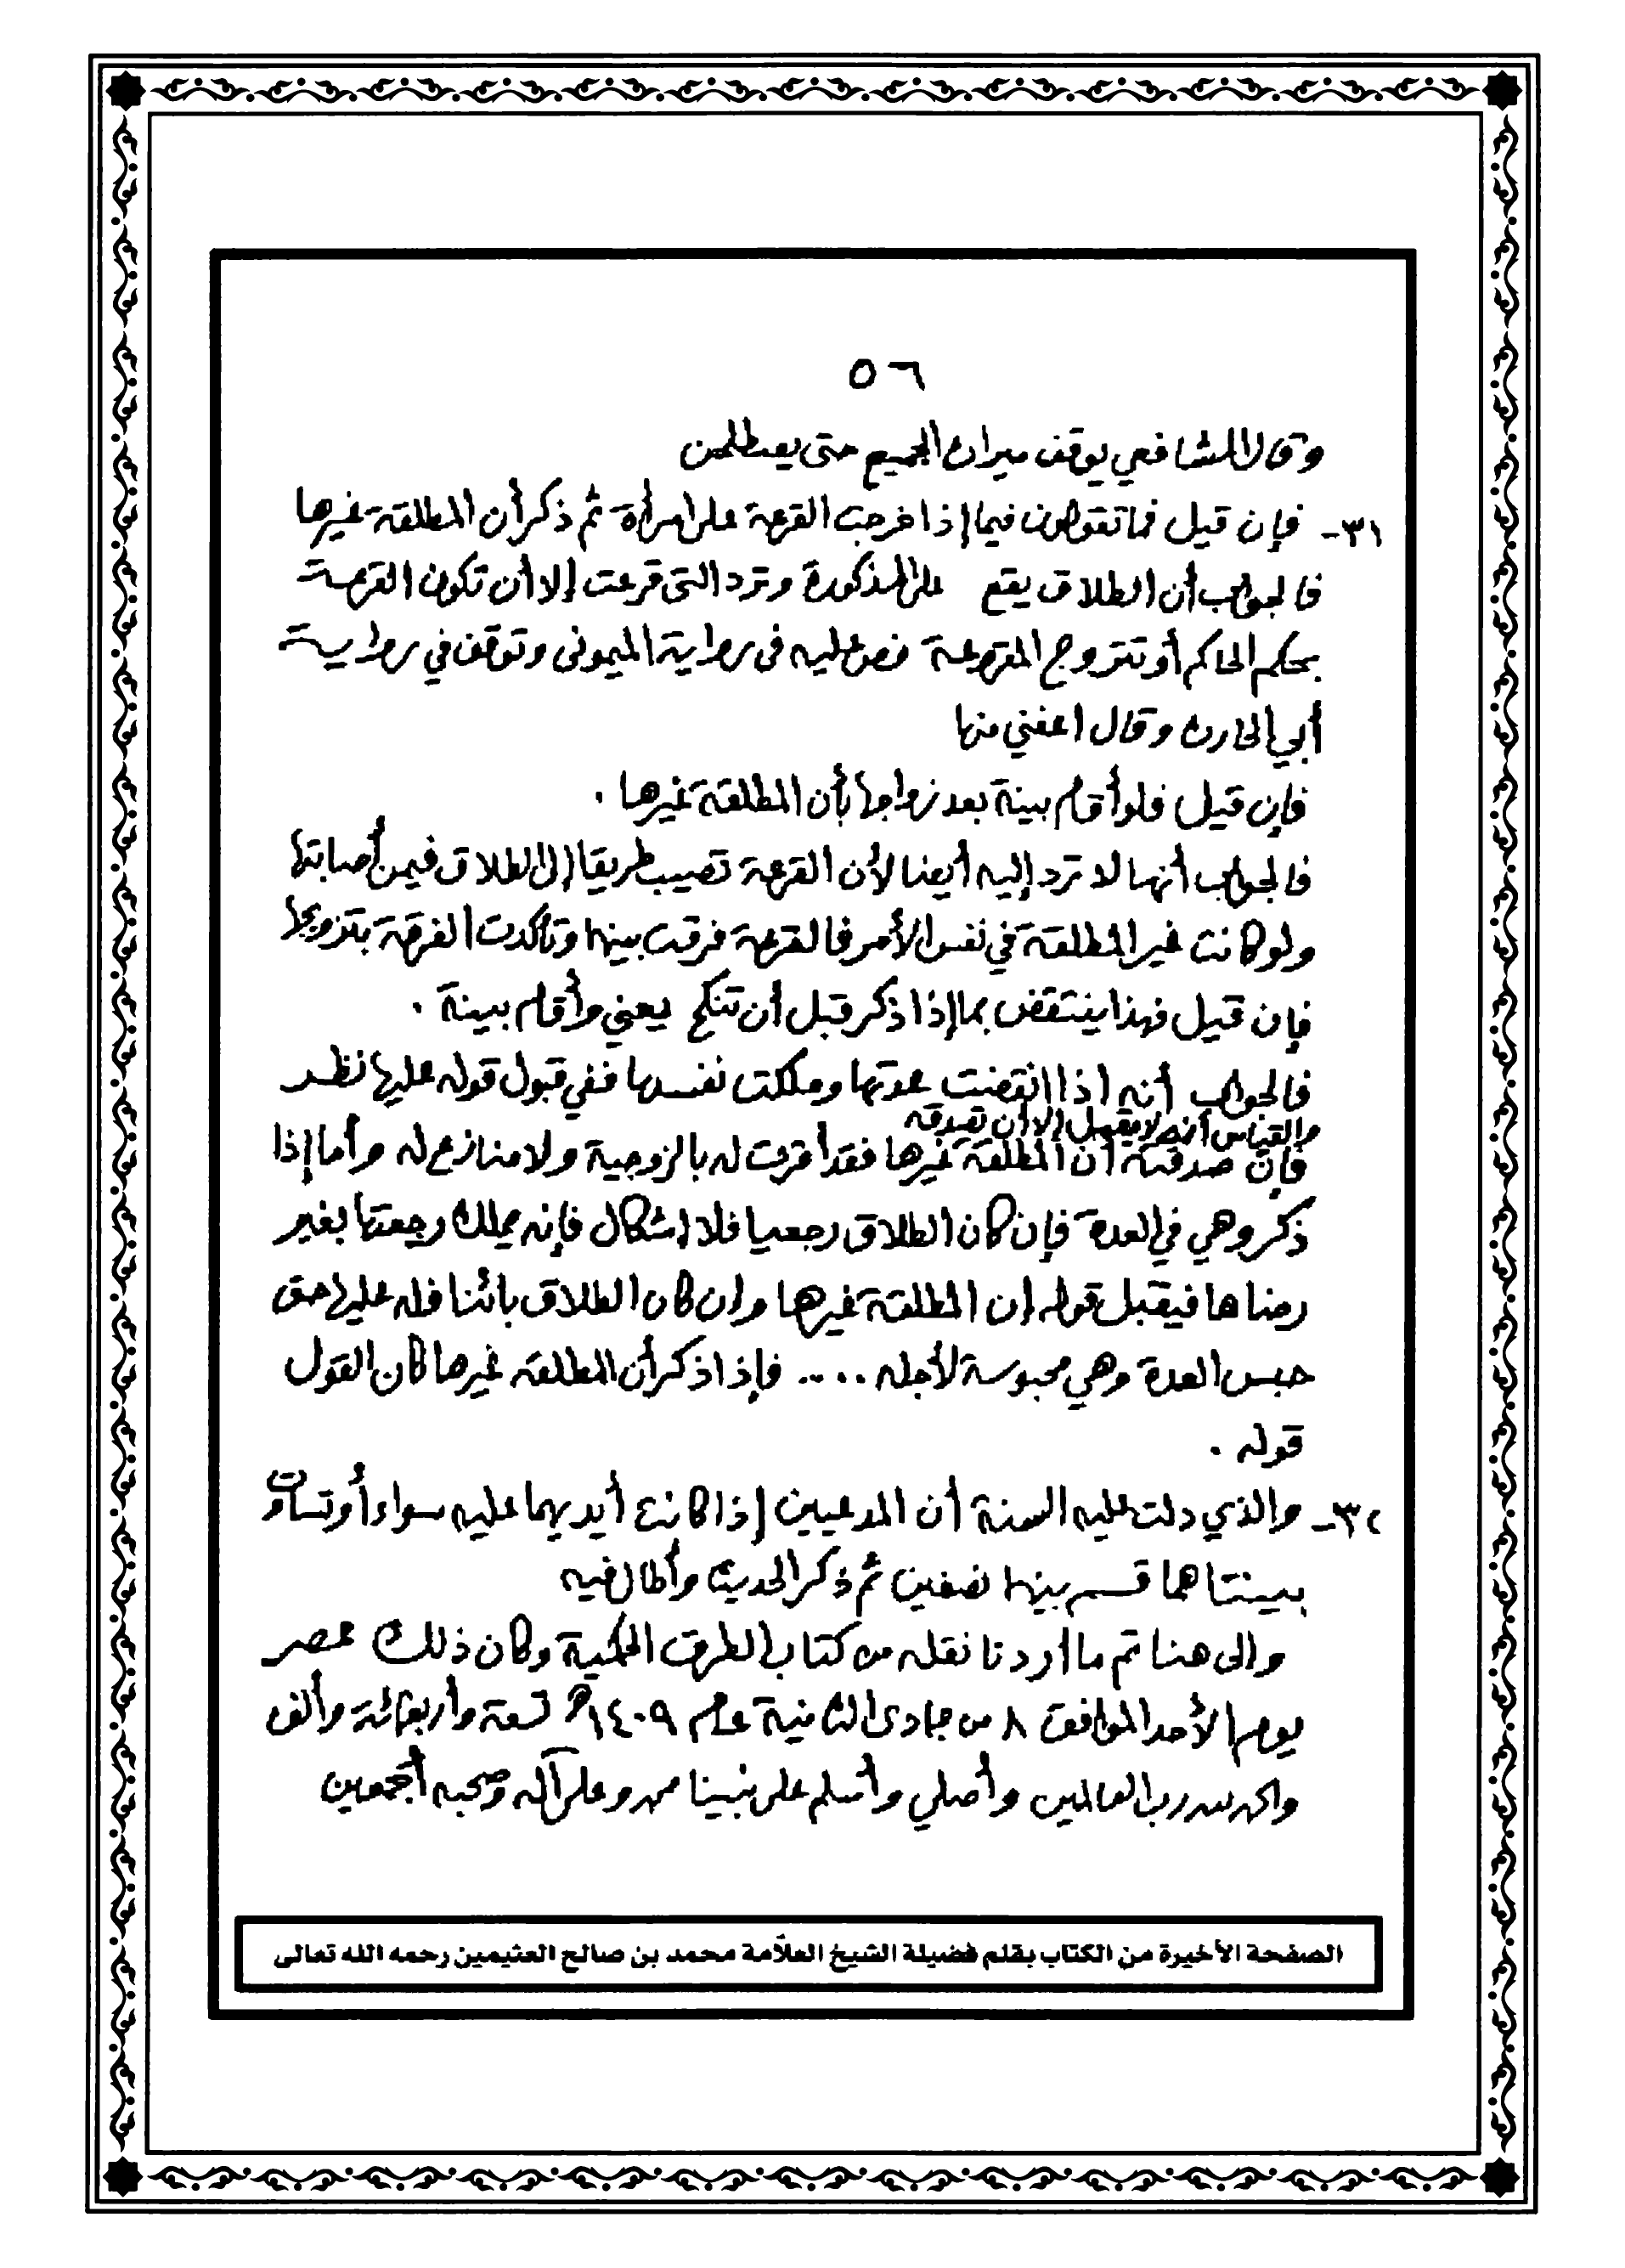 ٥٦
وقال الشافعي يوقف ميراث الجميع حتى يصطلحن
٣١- فإن قيل فما تقولون فيما إذا خرجت القرعة على امرأة ثم ذكر أن المطلقة غيرها
فالجواب أن الطلاق يقع على المذكورة وترد التي قرعت إلا أن تكون القرعة
بحكم الحاكم أو تتزوج المقروعة نص عليه في رواية الميموني وتوقف في رواية
أبي الحارث وقال اعفني منها
فإن قيل فلو أقام بينة بعد زواجها بأن المطلقة غيرها .
فالجواب أنها لا ترد إليه أيضا لأن القرعة تصيب طريقا إلى الطلاق فيمن أصابتها
ولو كانت غير المطلقة في نفس الأمر فالقرعة فرقت بينهما وتأكدت الفرقة بتزويجها
فإن قيل فهذا ينتقض بما إذا ذكر قبل أن تنكح يعني وأقام بينة .
فالجواب أنه اذا انقضت عدتها وملكت نفسها ففي قبول قوله عليها نظر
والقياس أنه لا يقبل إلا أن تصدقه
فإن صدقته أن المطلقة غيرها فقد أقرت له بالزوجية ولا منازع له وأما إذا
ذكر وهي في العدة فإن كان الطلاق رجعيا فلا إشكال فإنه يملك رجعتها بغير
رضاها فيقبل قوله إن المطلقة غيرها وإن كان الطلاق بائنا فله عليها حق
حبس العدة وهي محبوسة لأجله ..... فإذا ذكر أن المطلقة غيرها كان القول
قوله .
٣٢- والذي دلت عليه السنة أن المدعيين إذا كانت أيديهما عليه سواء أو تساوت
بينتاهما قسم بينهما نصفين ثم ذكر الحديث وأطال فيه
وإلى هنا تم ما أردنا نقله من كتاب الطرق الحكمية وكان ذلك عصر
يوم الأحد الموافق ٨ من جمادى الثانية عام ١٤٠٩هـ تسعة وأربعمائة وألف
والحمد لله رب العالمين وأصلي وأسلم على نبينا محمد وعلى آله وصحبه أجمعين
الصفحة الأخيرة من الكتاب بقلم فضيلة الشيخ العلّامة محمد بن صالح العثيمين رحمه الله تعالى